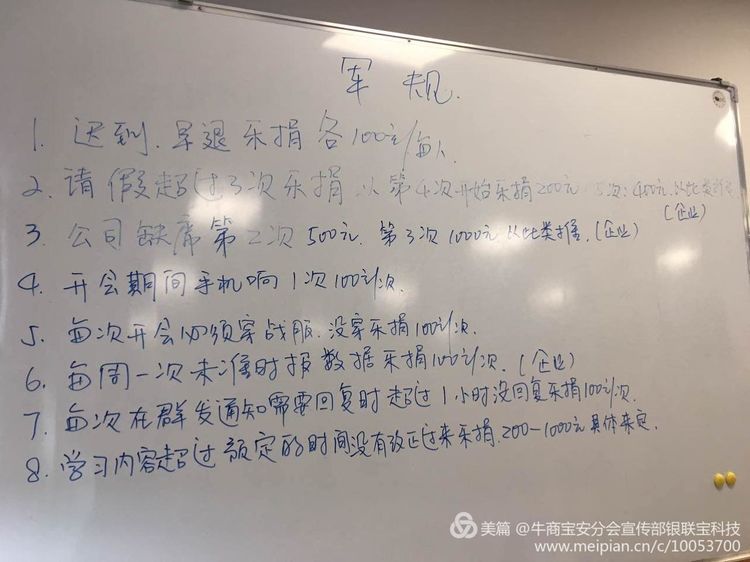 军规.
1. 迟到.早退乐捐各100元/每人.
2. 请假超过3次乐捐.从第4次开始乐捐200元.5次:400元.以此类推
(企业)
3. 公司缺席第2次500元.第3次1000元.以此类推.(企业)
4. 开会期间手机响1次100元/次.
5. 每次开会必须穿战服.没穿乐捐100元/次.
6. 每周一次未准时报数据乐捐100元/次.(企业)
7. 每次在群发通知需要回复时超过1小时没回复乐捐100元/次.
8. 学习内容超过额定的时间没有改正过来乐捐.200-1000元具体来定.
美篇 @牛商宝安分会宣传部银联宝科技
www.meipian.cn/c/10053700